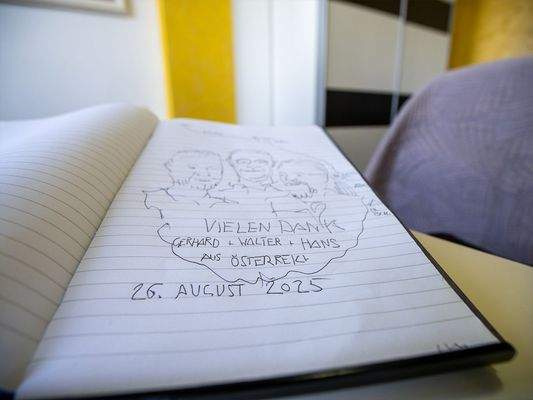 VIELEN DANK
GERHARD + WALTER + HANS
AUS ÖSTERREICH
26. AUGUST 2025